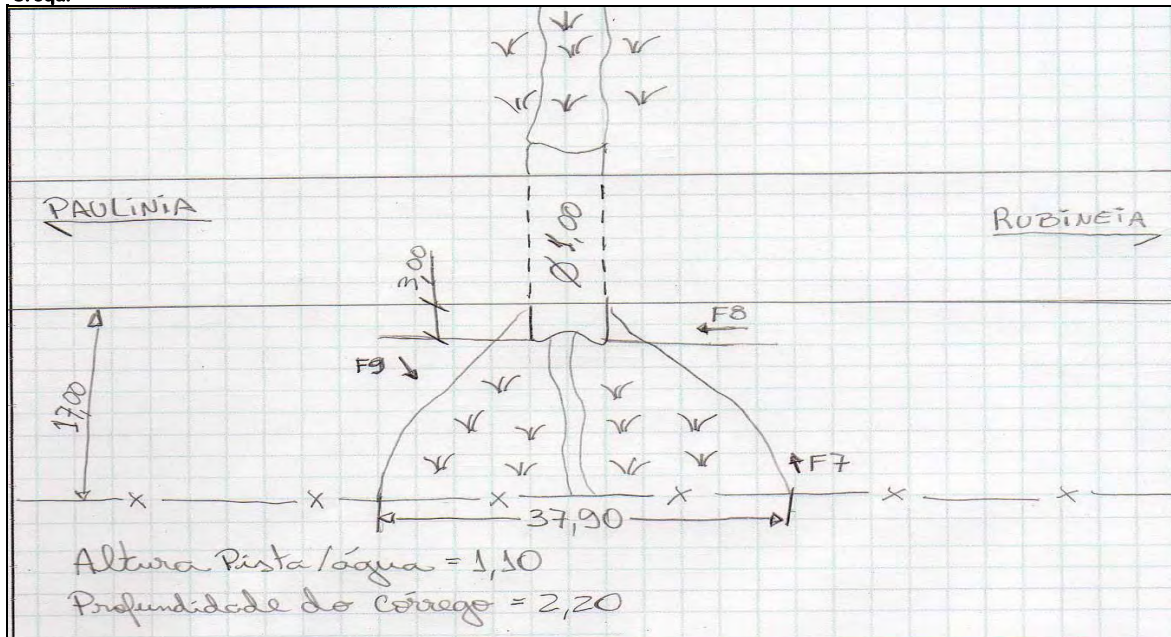 PAULÍNIA
RUBINEIA
Ø 1,00
3,00
F8
F9
17,00
F7
37,90
Altura Pista/água = 1,10
Profundidade do córrego = 2,20